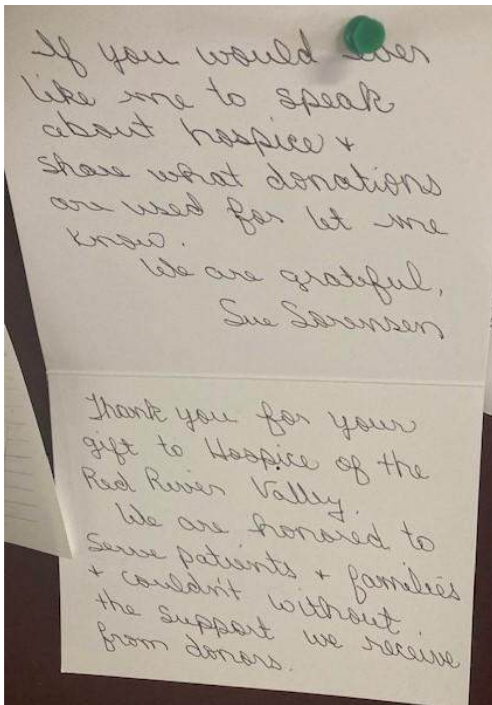 If you would ever
like me to speak
about hospice +
share what donations
are used for let me
know.
We are grateful,
Sue Sorensen
Thank you for your
gift to Hospice of the
Red River Valley.
We are honored to
serve patients + families
+ couldn't without
the support we receive
from donors.